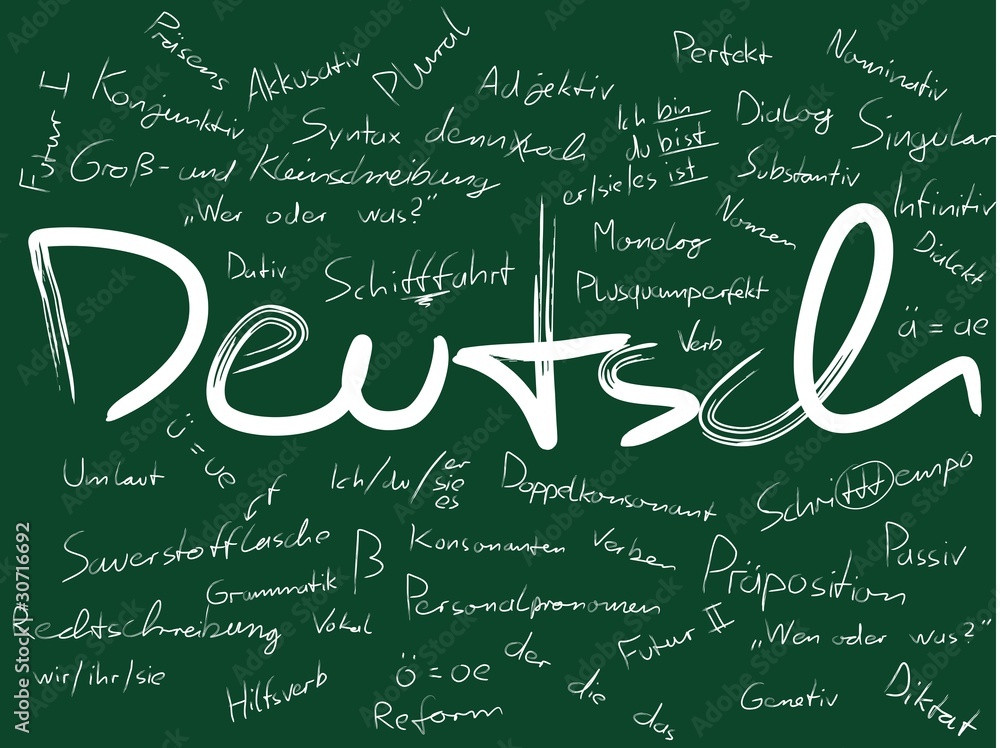 Präsens
Akkusativ
Plural
Perfekt
Nominativ
Futur I
Konjunktiv
Adjektiv
Syntax
dennxoch
Ich bin
du bist
er/sie/es ist
Dialog
Singular
Groß- und Kleinschreibung
Substantiv
"Wer oder was?"
Nomen
Infinitiv
Monolog
Dialekt
Dativ
Schifffahrt
Plusquamperfekt
ä = ae
Verb
Deutsch
ü = ue
Umlaut
Ich/du/er
sie
es
Doppelkonsonant
Schritttempo
f
Sauerstofflasche
ß
Konsonanten
Verben
Präposition
Passiv
Grammatik
Personalpronomen
Rechtschreibung
Vokal
Futur II
„Wen oder was?"
wir/ihr/sie
Hilfsverb
ö = oe
der
die
das
Reform
Genetiv
Diktat
Adobe Stock | #30716692